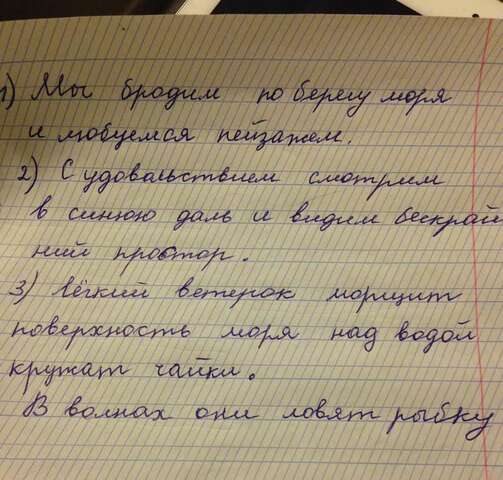 1) Мы бродим по берегу моря
и любуемся пейзажем.
2) С удовольствием смотрим
в синюю даль и видим бескрай
ний простор.
3) лёгкий ветерок морщит
поверхность моря над водой
кружат чайки.
В волнах они ловят рыбку